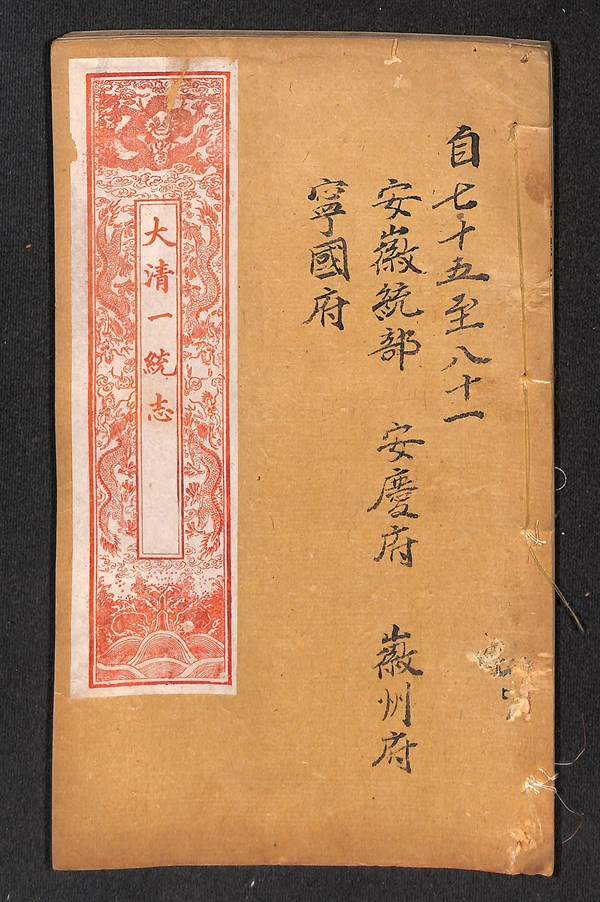 自七十五至八十一
安徽統部 安慶府 徽州府
寧國府
大清一統志